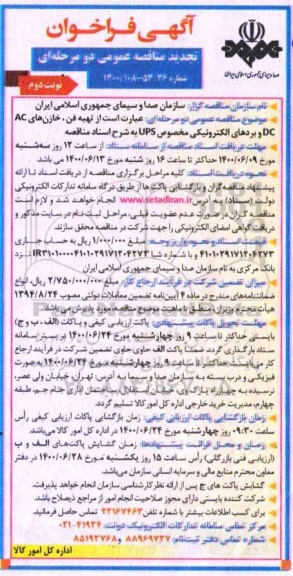 آگهی فراخوان
تجدید مناقصه عمومی دو مرحله‌ای
شماره ۵۳-۳۶-۱۴۰۰/۱۰۸
نوبت دوم
نام سازمان مناقصه گزار: سازمان صدا و سیمای جمهوری اسلامی ایران
موضوع مناقصه عمومی دو مرحله‌ای: عبارت است از تهیه فن ، خازن‌های AC
DC و بردهای الکترونیکی مخصوص UPS به شرح اسناد مناقصه
مهلت دریافت اسناد مناقصه از سامانه ستاد: از ساعت ۱۲ روز سه‌شنبه
مورخ ۱۴۰۰/۰۶/۰۹ حداکثر تا ساعت ۱۶ روز شنبه مورخ ۱۴۰۰/۰۶/۱۳ می باشد.
نحوه دریافت اسناد: کلیه مراحل برگزاری مناقصه از دریافت اسناد تا ارائه
پیشنهاد مناقصه‌گران و بازگشایی پاکت‌ها از طریق درگاه سامانه تدارکات الکترونیکی
دولت (ستاد) به آدرس www.setadiran.ir انجام خواهد شد و لازم است
مناقصه گران در صورت عدم عضویت قبلی، مراحل ثبت نام در سایت مذکور و
دریافت گواهی امضای الکترونیکی را جهت شرکت در مناقصه محقق سازند.
مبلغ ۱/۰۰۰/۰۰۰ ریال به حساب جاری
بانک مرکزی به نام سازمان صدا و سیمای جمهوری اسلامی ایران
میزان تضمین شرکت در فرآیند ارجاع کار: مبلغ ۲/۷۵۰/۰۰۰/۰۰۰ ریال، انواع
ضمانتنامه‌های مندرج در ماده ۴ آیین‌نامه تضمین معاملات دولتی مصوب ۱۳۹۴/۸/۲۴
هیأت محترم وزیران، منطبق با ماهیت موضوع مناقصه مورد پذیرش می باشد.
مهلت تحویل پاکات پیشنهادی: پاکات ارزیابی کیفی و پاکات (الف، ب و ج)
بایستی حداکثر تا ساعت ۹ روز چهارشنبه مورخ ۱۴۰۰/۰۶/۲۴ بر بستر سامانه
ستاد بارگذاری گردد ضمناً پاکت الف حاوی تضمین شرکت در فرآیند ارجاع
کار، می بایست حداکثر تا ساعت ۹ روز چهارشنبه مورخ ۱۴۰۰/۰۶/۲۴ به صورت
فیزیکی و دربسته به سازمان صدا و سیما به آدرس: تهران، خیابان ولی عصر،
چهارم، مدیریت خرید خارجی اداره کل امور کالا تسلیم گردد.
زمان بازگشایی پاکات ارزیابی کیفی: زمان بازگشایی پاکات ارزیابی کیفی رأس
ساعت ۰۹:۳۰ روز چهارشنبه مورخ ۱۴۰۰/۰۶/۲۴ در اداره کل امور کالا می‌باشد.
زمان و محل قرائت پیشنهادها: زمان گشایش پاکت‌های الف و ب
(ارزیابی فنی بازرگانی) رأس ساعت ۱۵ روز یکشنبه مورخ ۱۴۰۰/۰۶/۲۸ در دفتر
معاون محترم منابع مالی و سرمایه انسانی سازمان می‌باشد.
گشایش پاکت های ج پس از ارائه نظر کارشناسی سازمان انجام خواهد پذیرفت.
شرکت کننده بایستی دارای مجوز صلاحیت انجام امور از مراجع ذیصلاح باشد.
برای کسب اطلاعات بیشتر با شماره تلفن ۲۲۱۶۷۴۶۳ تماس حاصل فرمائید.
مرکز تماس سامانه تدارکات الکترونیک دولت: ۴۱۹۳۴-۰۲۱
شماره تماس دفتر ثبت‌نام: ۸۸۹۶۹۷۳۷ و ۸۵۱۹۳۷۶۸
اداره کل امور کالا